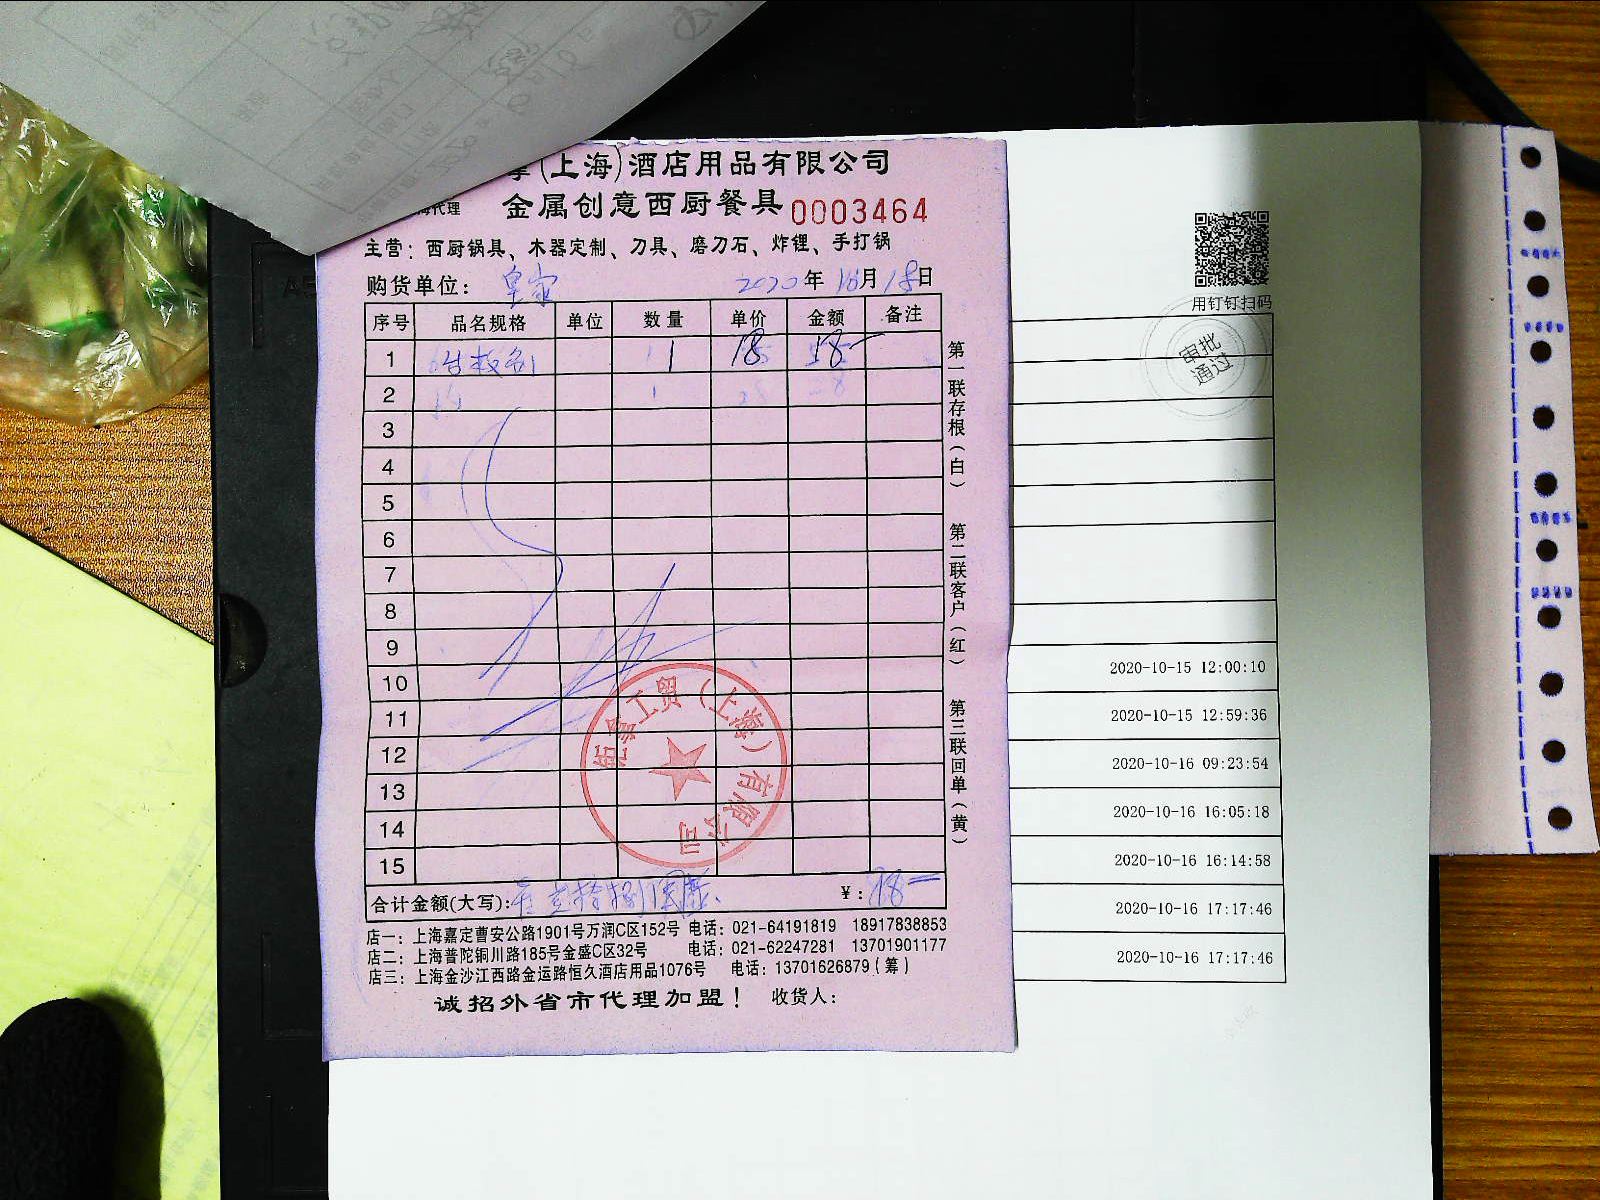 (上海)酒店用品有限公司
海代理 金属创意西厨餐具 0003464
主营：西厨锅具、木器定制、刀具、磨刀石、炸锂、手打锅
购货单位：皇家 2020年10月18日
序号 品名规格 单位 数量 单价 金额 备注
1 1 18 18
2 1 28 28
3
4
5
6
7
8
9
10
11
12
13
14
15
合计金额(大写): ¥: 18
店一：上海嘉定曹安公路1901号万润C区152号 电话：021-64191819 18917838853
店二：上海普陀铜川路185号金盛C区32号 电话：021-62247281 13701901177
店三：上海金沙江西路金运路恒久酒店用品1076号 电话：13701626879(筹)
诚招外省市代理加盟！ 收货人：
第一联存根(白) 第二联客户(红) 第三联回单(黄)
工贸(上海)有限公司
用钉钉扫码
审批
通过
2020-10-15 12:00:10
2020-10-15 12:59:36
2020-10-16 09:23:54
2020-10-16 16:05:18
2020-10-16 16:14:58
2020-10-16 17:17:46
2020-10-16 17:17:46